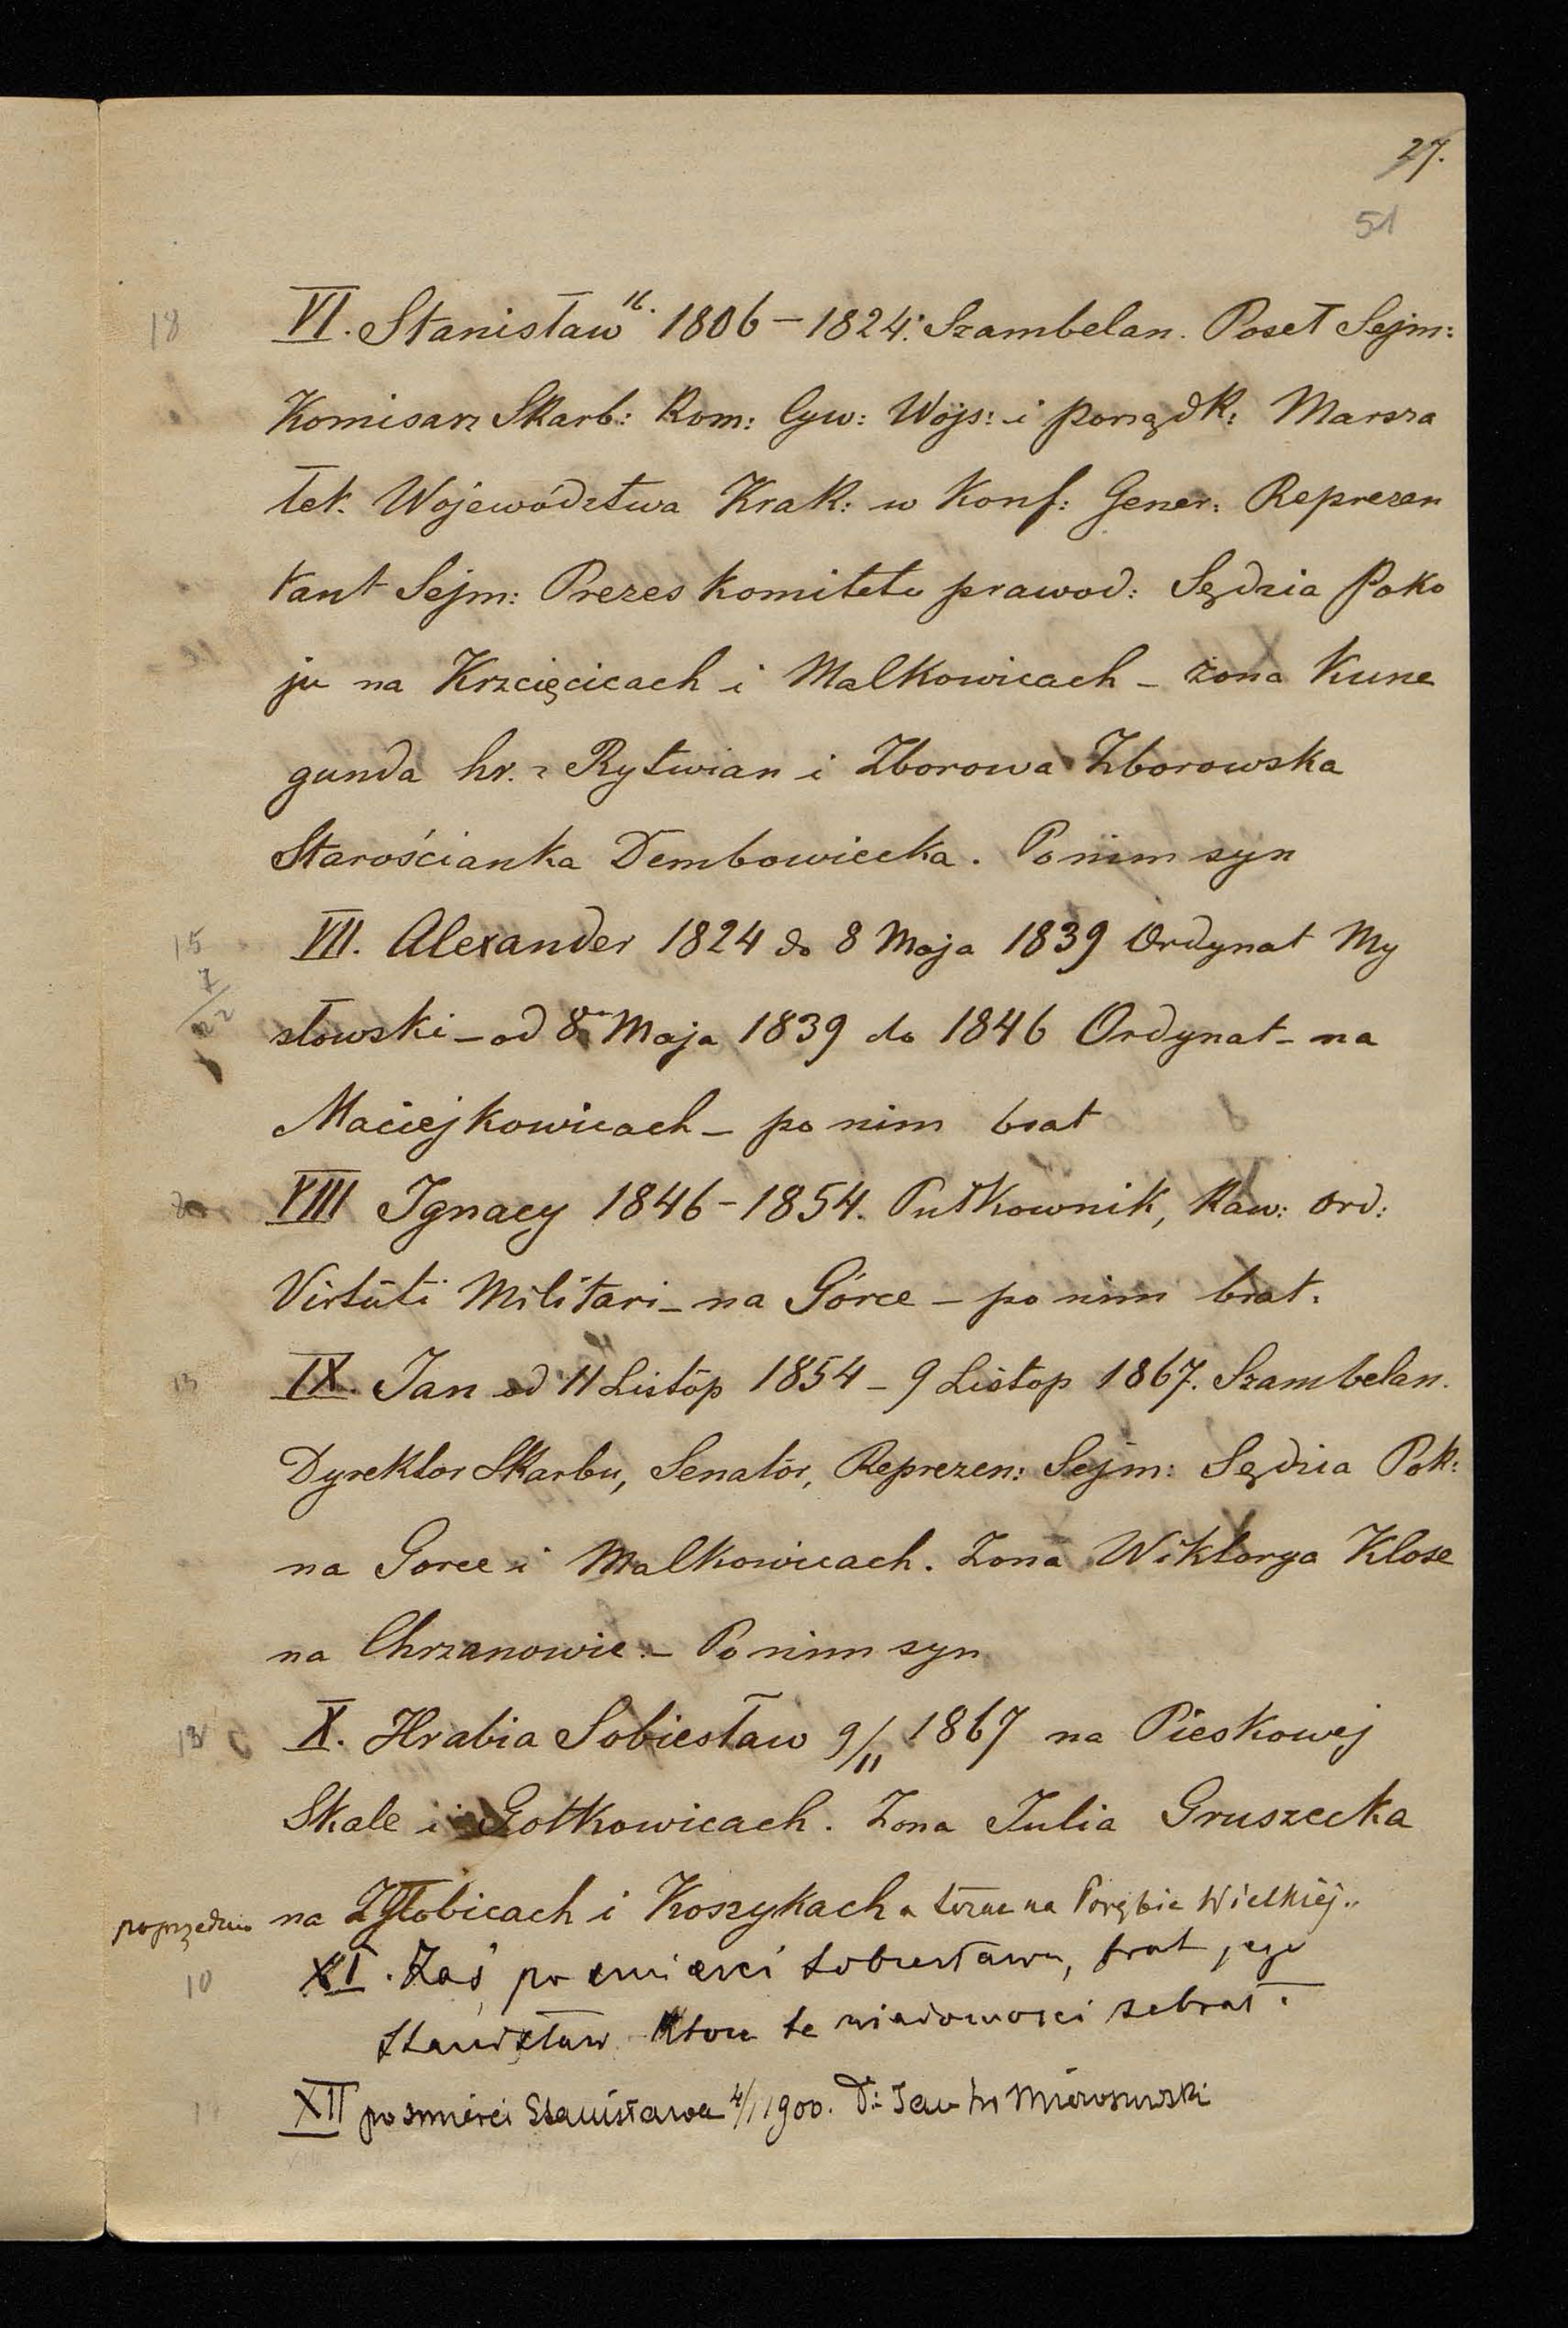 27.
51
18 VI. Stanisław 16. 1806 – 1824. Szambelan. Poseł Sejm:
Komisarz Skarb: Kom: Cyw: Wojs: i porządk: Marsza
łek. Województwa Krak: w Konf: Gener: Reprezen
tant Sejm: Prezes komitetu prawod: Sędzia Poko
ju na Krzcięcicach i Malkowicach – żona Kune
gunda hr. z Rytwian i Zborowa Zborowska
Starościanka Dembowiecka. Po nim syn
15 VII. Alexander 1824 do 8 Maja 1839 Ordynat My
7
22
słowski – od 8 Maja 1839 do 1846 Ordynat – na
Maciejkowicach – po nim brat
VIII Ignacy 1846 – 1854. Pułkownik, Kaw: Ord:
Virtuti Militari – na Górce – po nim brat.
13 IX. Jan od 11 Listop 1854 – 9 Listop 1867. Szambelan.
Dyrektor Skarbu, Senator, Reprezen: Sejm: Sędzia Pok:
na Gorce i Malkowicach. Żona Wiktorya Klose
na Chrzanowie. – Po nim syn
X. Hrabia Sobiesław 9/11 1867 na Pieskowej
Skale i Gołkowicach. Żona Julia Gruszecka
poprzednio na Zgłobicach i Koszykach a teraz na Porębie Wielkiej.
10 XI. Zaś po śmierci Sobiesława, brat jego
Stanisław. Który te wiadomości zebrał.
XII po śmierci Stanisława 4/1 1900. Dr Jan hr Mieroszowski